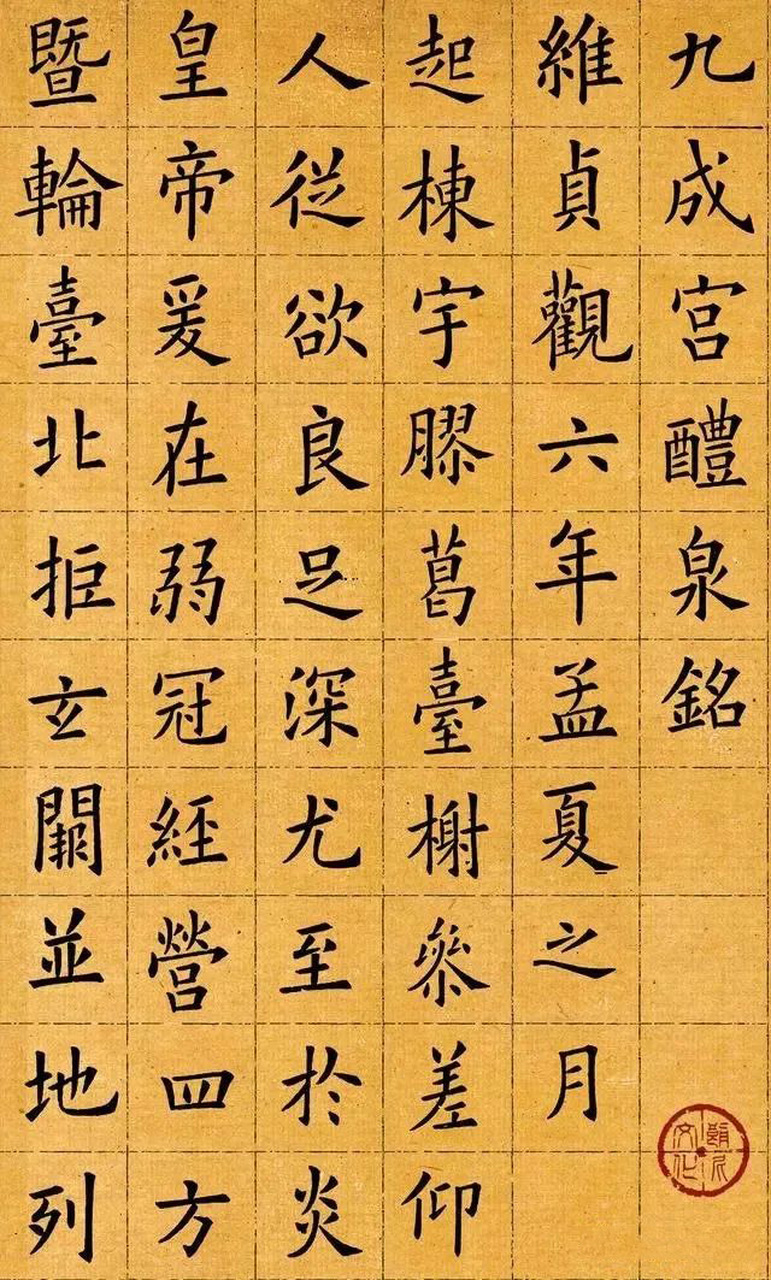 九成宮醴泉銘
維貞觀六年孟夏之月
起棟宇膠葛臺榭參差仰
人從欲良足深尤至於炎
皇帝爰在弱冠經營四方
暨輪臺北拒玄闕並地列
文化